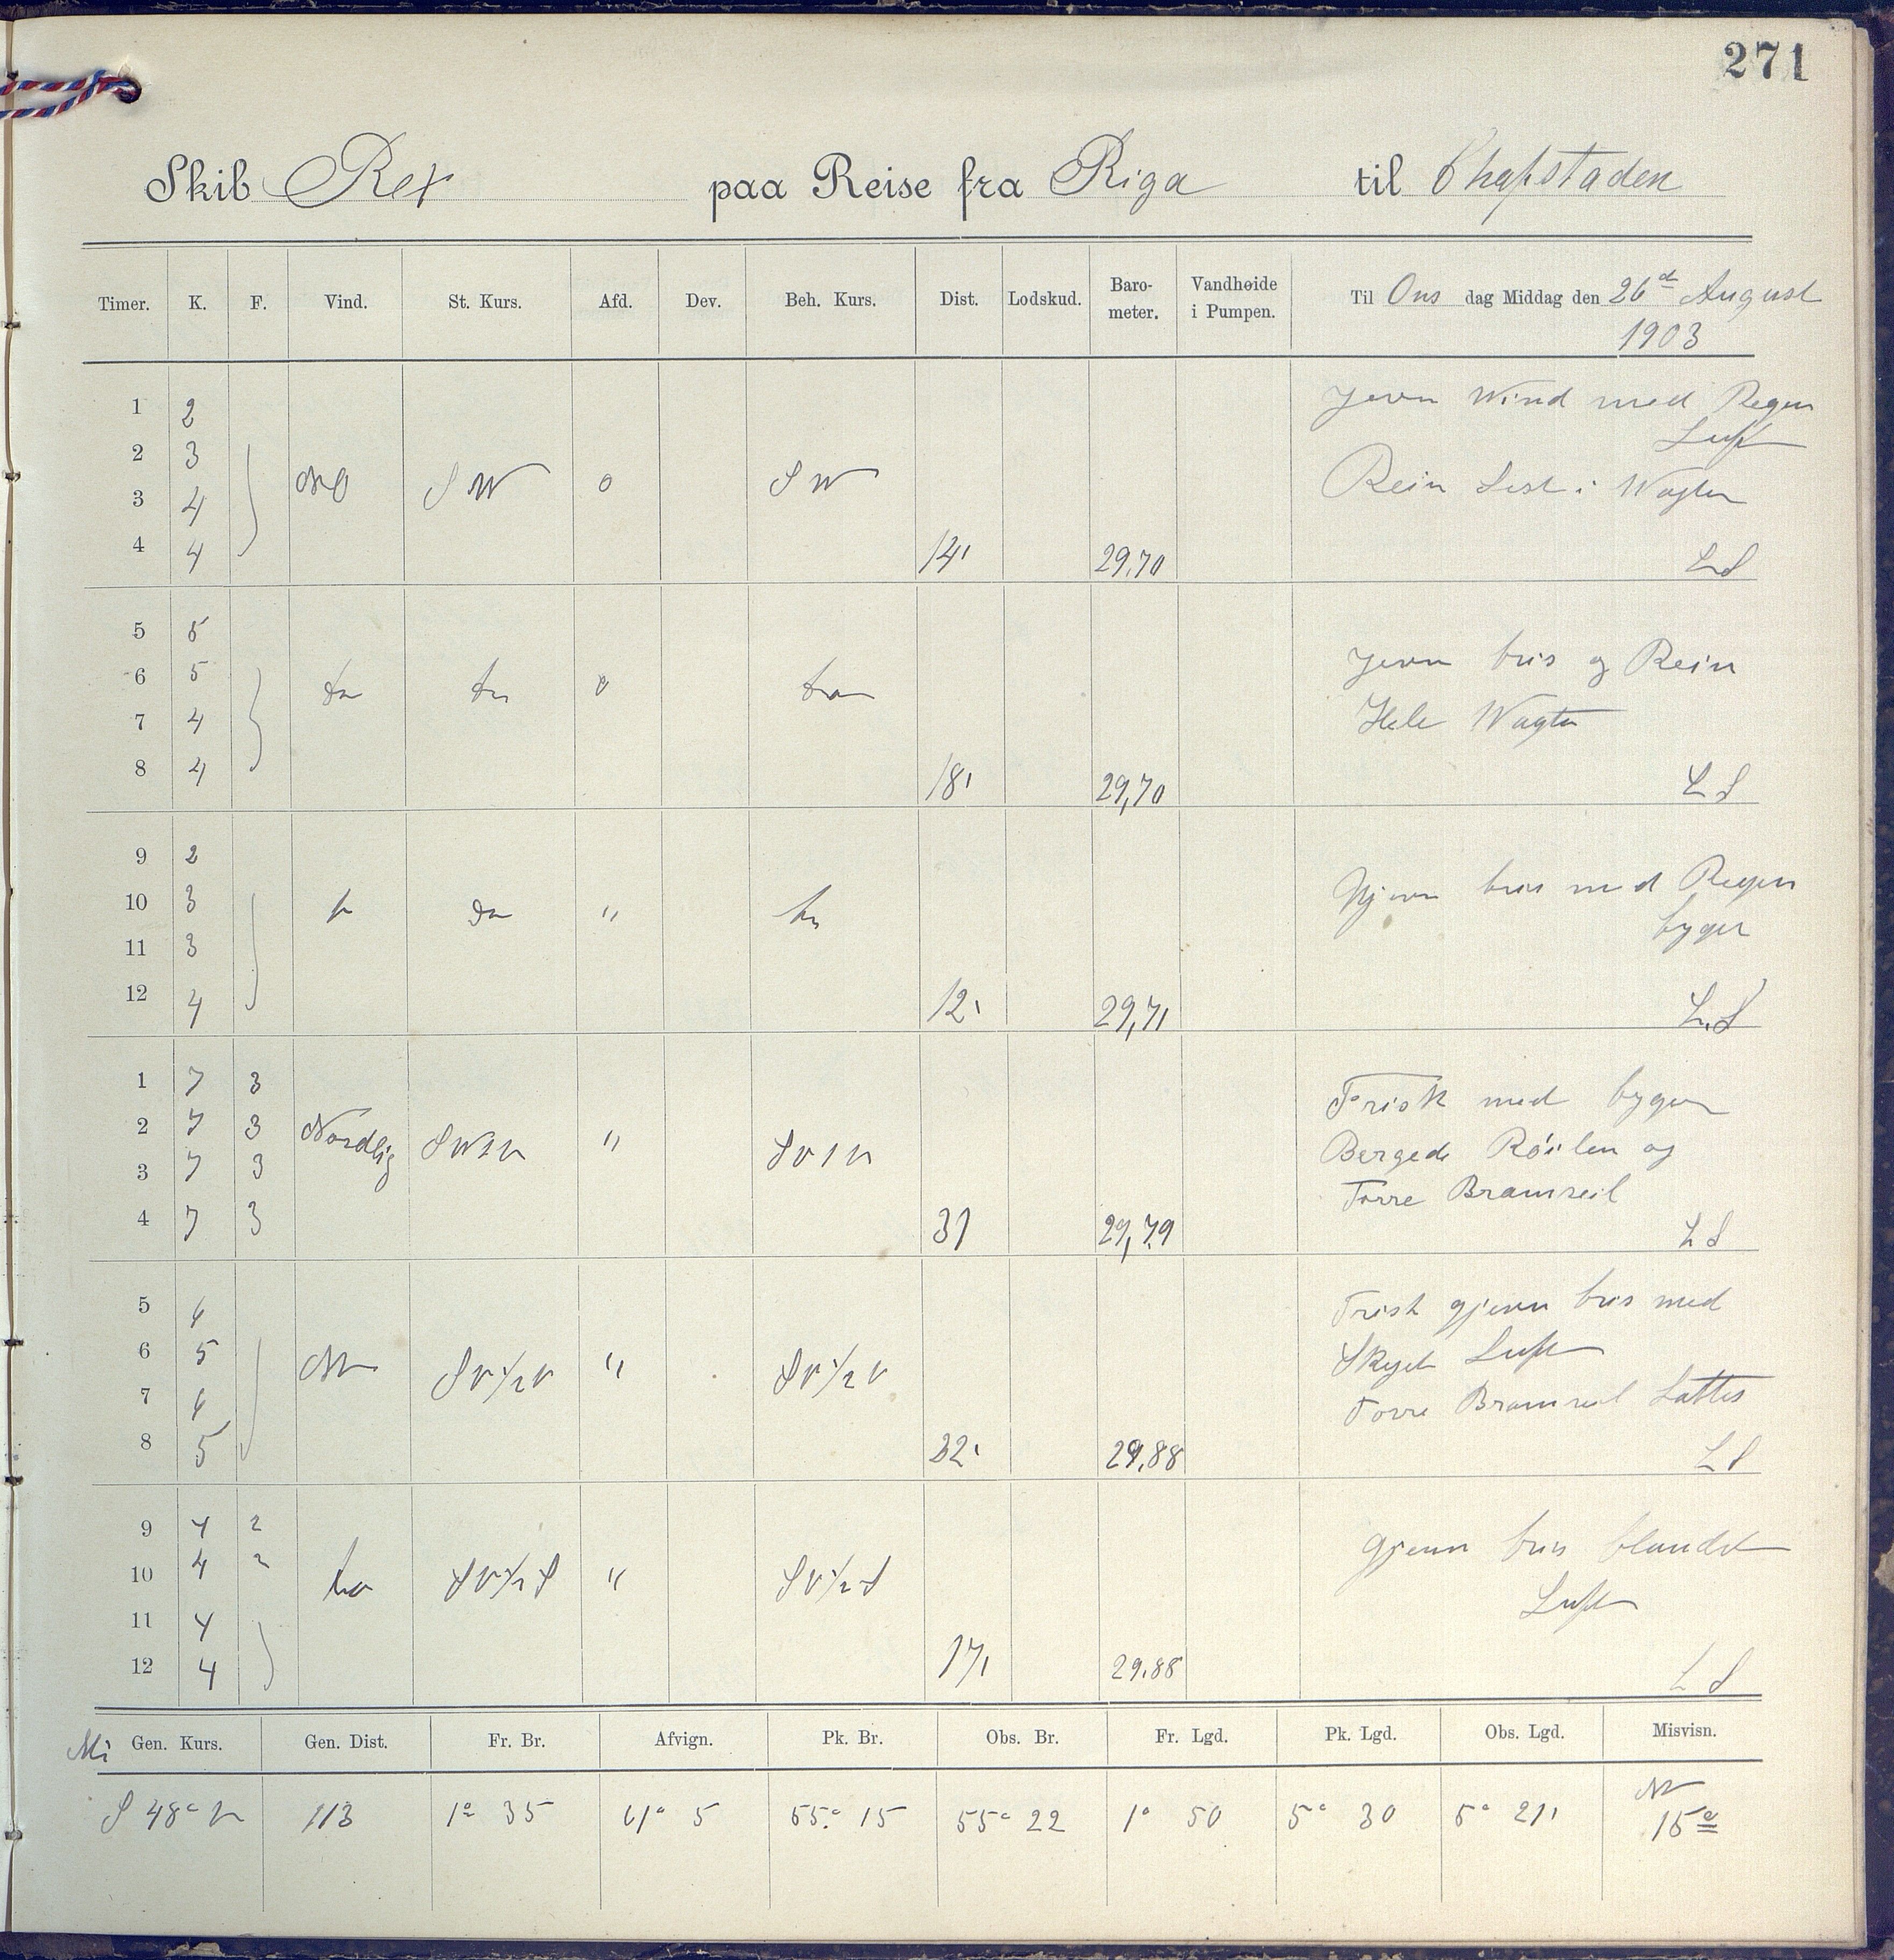 271
Skib Rex paa Reise fra Riga til Chapstaden
Timer. K. F. Vind. St. Kurs. Afd. Dev. Beh. Kurs. Dist. Lodskud. Baro-meter. Vandhøide i Pumpen. Til Ons dag Middag den 26d August
1903
1 2 Jevn Wind med Regn
Luft
2 3
3 4 NO SW 0 SW Rein Sest i Wagten
4 4 14' 29.70 LS
5 5
6 5 do do 0 do Jevn bris og Rein
7 4 Hele Wagten
8 4 18' 29,70 LS
9 2
10 3 do do " do Gjevn bris med Regen
11 3 byger
12 4 12' 29,71 L.S
1 7 3 Frisk med byger
2 7 3 Nordlig SW1V " SV1V Bergede Röilen og
3 7 3 Forre Bramseil
4 7 3 31 29,79 LS
5 6 Frisk gjevn bris med
6 5 NV SV½V " SV½V Skyet Luft
7 6 Forre Bramseil Sattes
8 5 22' 29.88 LS
9 4 2 gjevn bris blandet
10 4 2 do SV½S " SV½S Luft
11 4
12 4 17' 29.88 LS
Mi Gen. Kurs. Gen. Dist. Fr. Br. Afvign. Pk. Br. Obs. Br. Fr. Lgd. Pk. Lgd. Obs. Lgd. Misvisn.
S 48° V 113 1° 35 5 55° 15 55° 22 1° 50 5° 30 5° 21' NV
15°